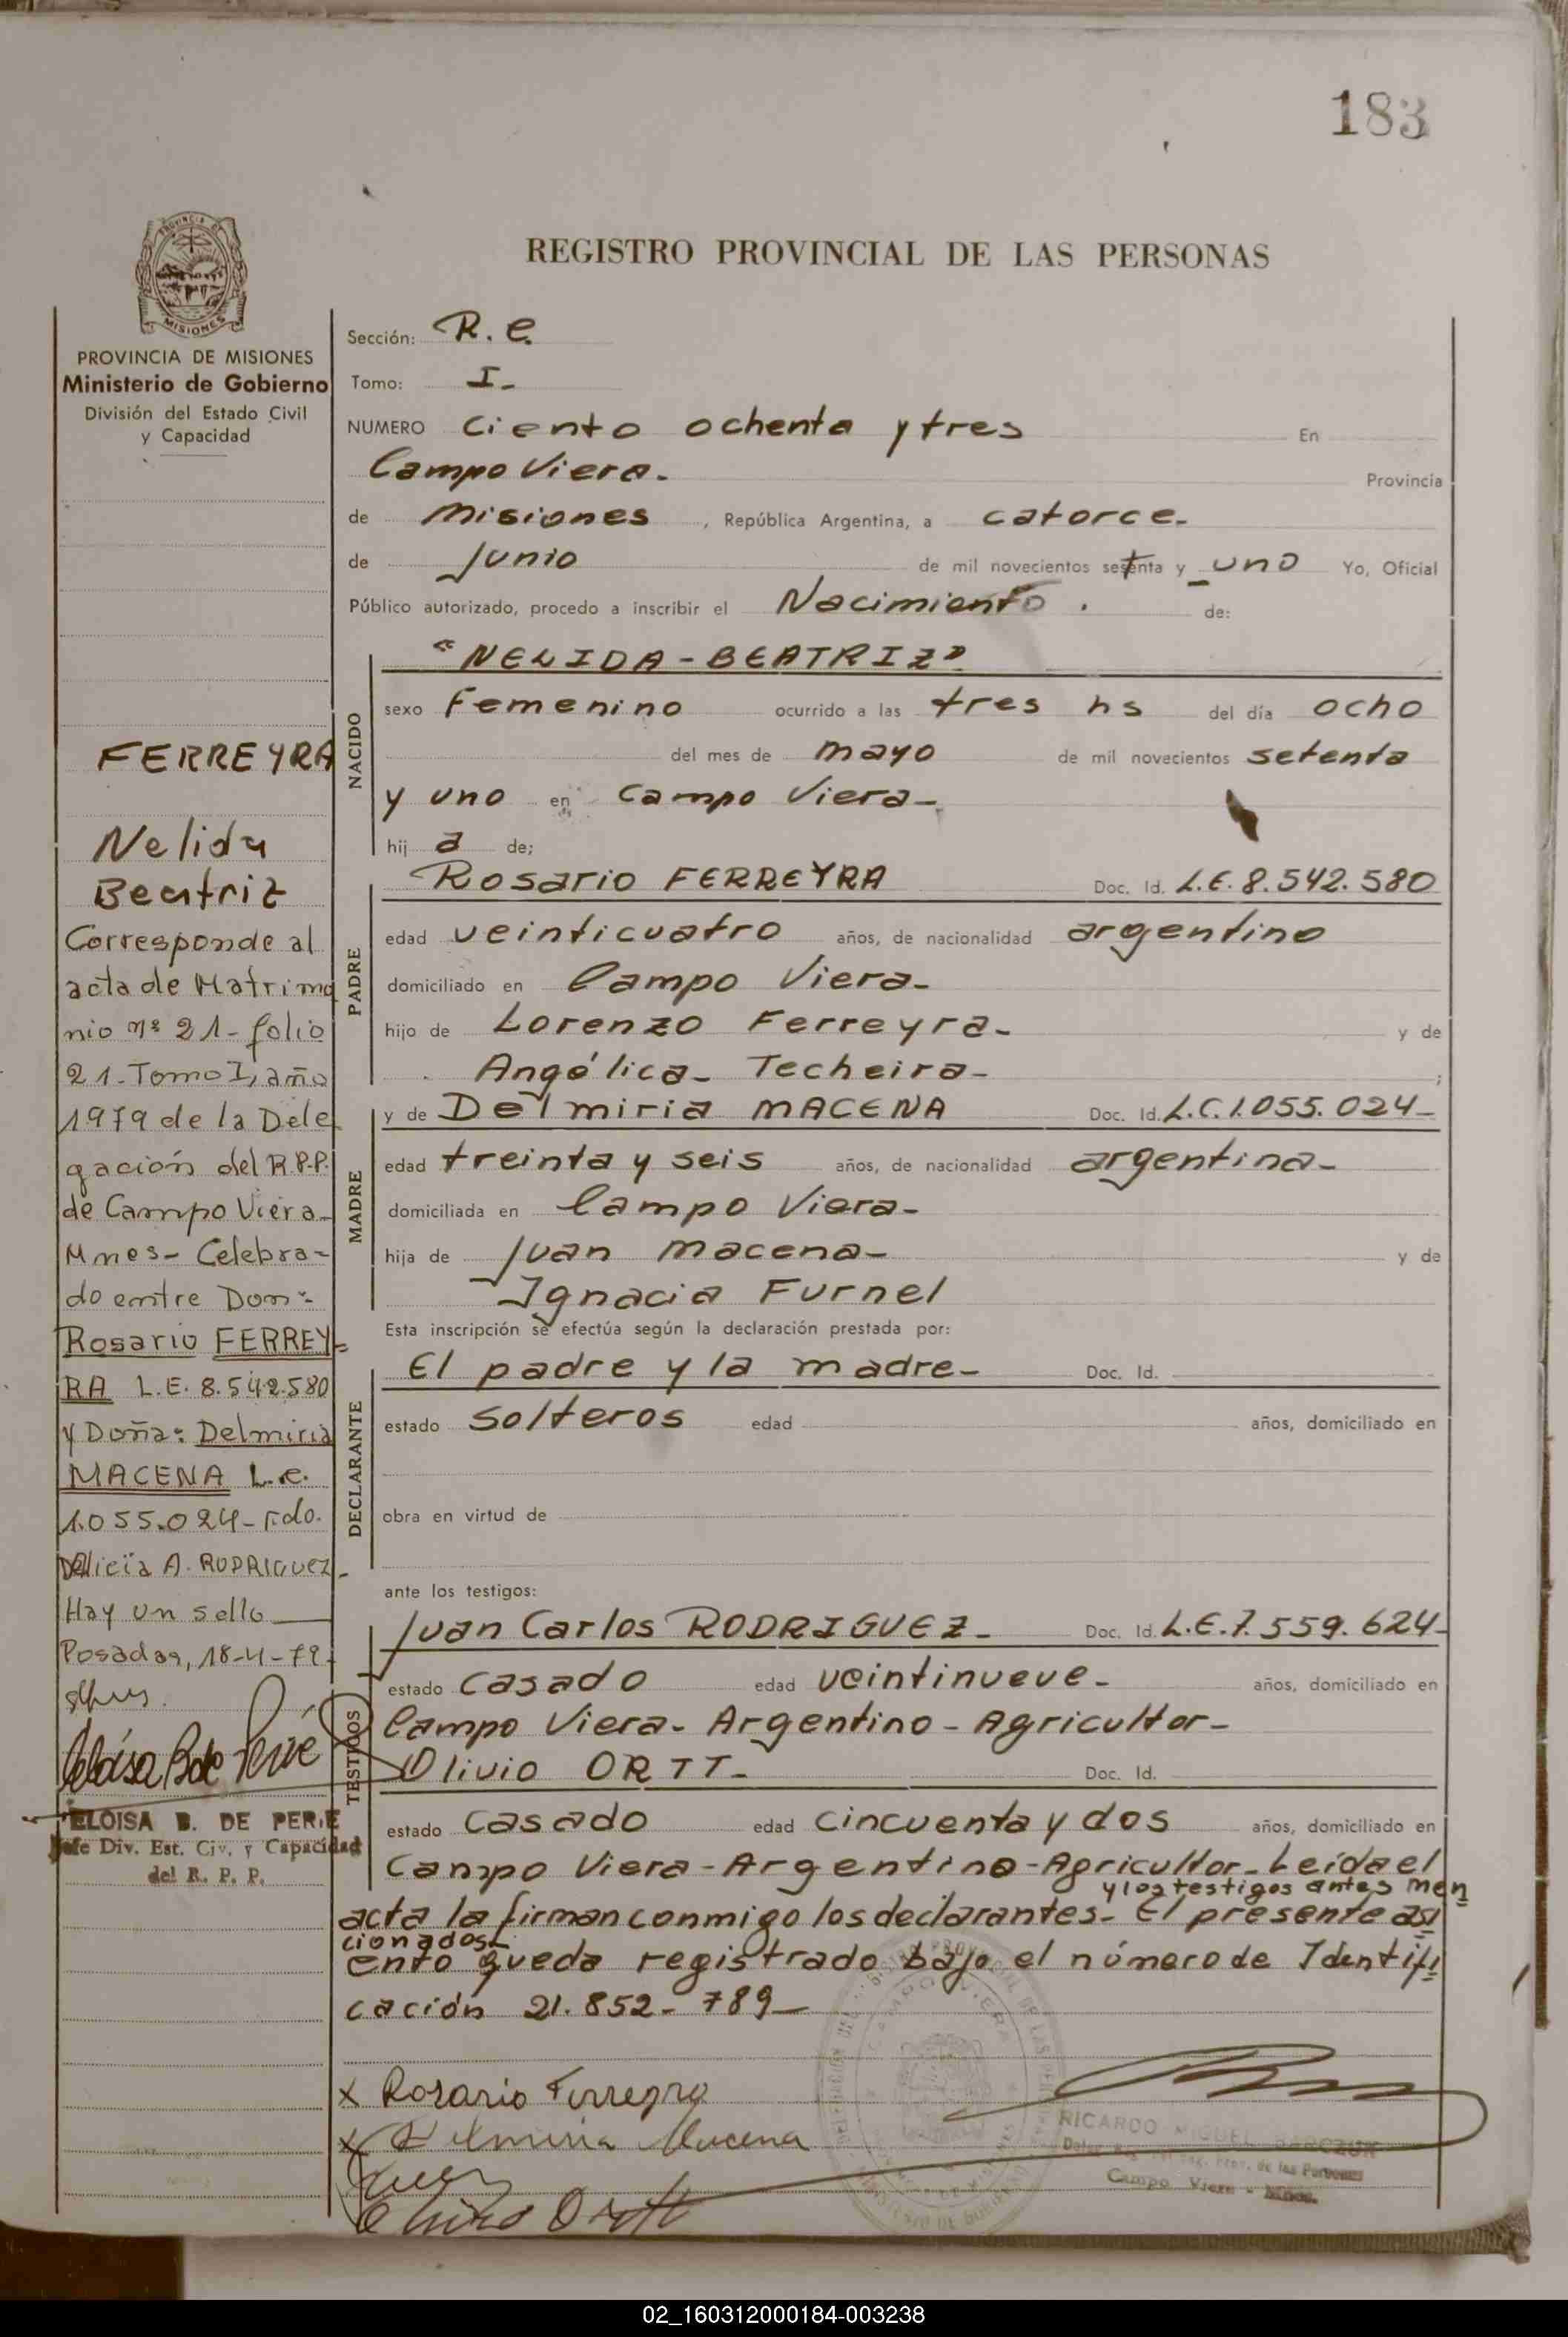 183
PROVINCIA DE
MISIONES
REGISTRO PROVINCIAL DE LAS PERSONAS
PROVINCIA DE MISIONES
Ministerio de Gobierno
División del Estado Civil
y Capacidad
FERREYRA
Nelida
Beatriz
Corresponde al
acta de Matrimo
nio nº 21-folio
21-Tomo I, año
1979 de la Dele
gación del R.P.P.
de Campo Viera-
Mnes- Celebra-
do entre Don:
Rosario FERREY=
RA L.E. 8.542.580
y Doña: Delmiria
MACENA L.C.
1.055.024- Fdo.
Delicia A. RODRIGUEZ-
Hay un sello
Posadas, 18-4-79-
Eloisa B de Perié
ELOISA B. DE PERIE
Jefe Div. Est. Civ. y Capacidad
del R. P. P.
Sección: R. C.
Tomo: I-
NUMERO Ciento ochenta y tres En
Campo Viera- Provincia
de Misiones, República Argentina, a catorce-
de Junio de mil novecientos setenta y uno Yo, Oficial
Público autorizado, procedo a inscribir el Nacimiento. de:
NACIDO
"NELIDA-BEATRIZ"
sexo Femenino ocurrido a las tres hs del día ocho
del mes de mayo de mil novecientos setenta
y uno en Campo Viera-
hij a de;
PADRE
Rosario FERREYRA Doc. Id. L.E. 8.542.580
edad veinticuatro años, de nacionalidad argentino
domiciliado en Campo Viera-
hijo de Lorenzo Ferreyra- y de
Angélica- Techeira- ;
MADRE
y de Delmiria MACENA Doc. Id. L.C.1.055.024-
edad treinta y seis años, de nacionalidad argentina-
domiciliada en Campo Viera-
hija de Juan Macena- y de
Ignacia Furnel
Esta inscripción se efectúa según la declaración prestada por:
DECLARANTE
El padre y la madre- Doc. Id.
estado Solteros edad años, domiciliado en
obra en virtud de
ante los testigos:
TESTIGOS
Juan Carlos RODRIGUEZ- Doc. Id. L.E.7.559.624-
estado Casado edad veintinueve- años, domiciliado en
Campo Viera- Argentino- Agricultor-
Olivio ORTT- Doc. Id.
estado Casado edad Cincuenta y dos años, domiciliado en
Campo Viera-Argentino-Agricultor-Leída el
y los testigos antes men
acta la firman conmigo los declarantes- El presente así
cionados-
ento queda registrado bajo el número de Identifi
cación 21.852-789-
x Rosario Ferreyra
x Delmiria Macena
Olivio Ortt
RICARDO MIGUEL BARCZUK
Prov. de las Personas
Campo Viera - Mnes.
02_160312000184-003238